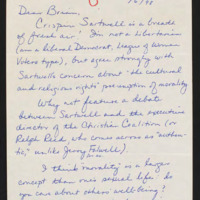 Dear Brian,
Crispin Sartwell is a breath
of fresh air! I'm not a Libertarian
(am a liberal Democrat, League of Women
Voters type), but agree strongly with
Sartwell's concerns about "the cultural
and religious right's" presumption of morality
Why not feature a debate
between Sartwell and the executive
director of the Christian Coalition (or
Ralph Reed, who comes across as "authen-
tic," unlike Jerry Falwell)
I think "morality" is a larger
concept than one's sexual life: do
you care about others well-being?